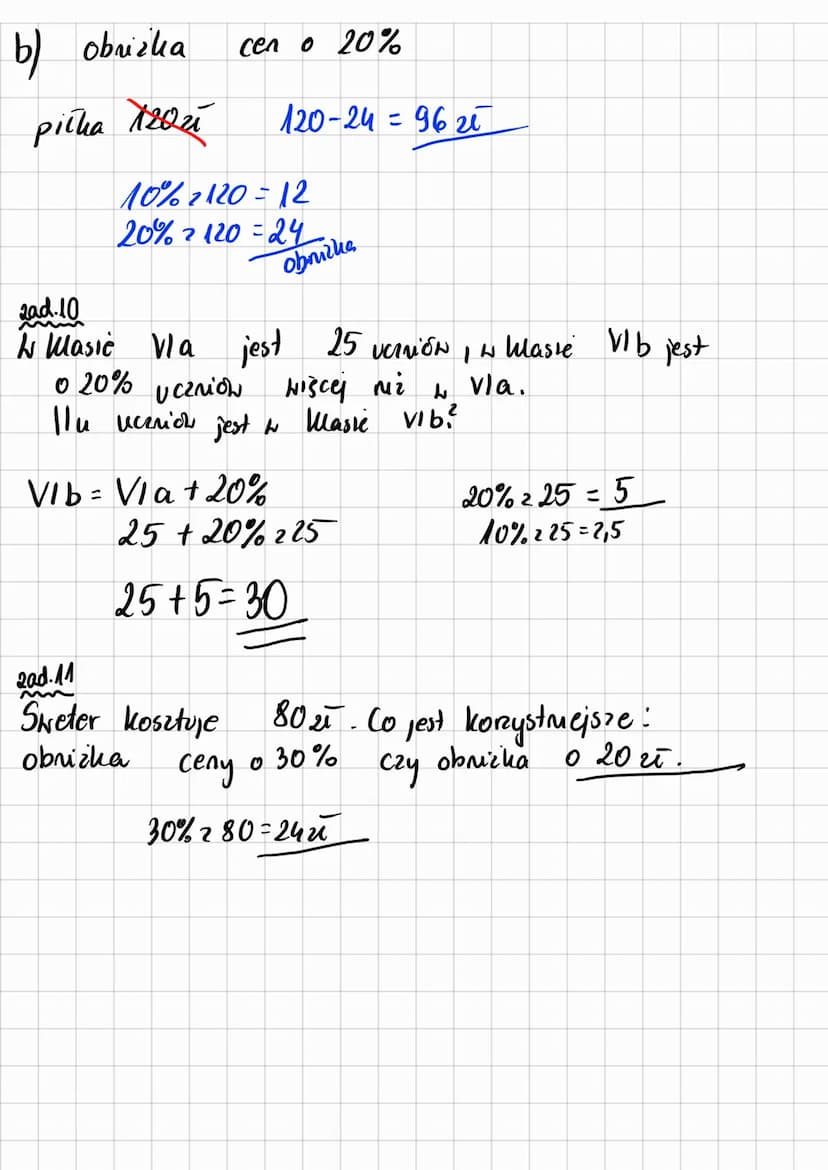 b) obniżka cen o 20%
piłka 120zł 120-24 = 96 zł
10% z 120 = 12
20% z 120 = 24
obniżka
zad.10
W klasie VIa jest 25 uczniów, w klasie VIb jest
o 20% uczniów więcej niż w VIa.
Ilu uczniów jest w klasie VIb?
VIb = VIa + 20% 20% z 25 = 5
25 + 20% z 25 10% z 25 = 2,5
25 + 5 = 30
zad.11
Sweter kosztuje 80zł. Co jest korzystniejsze:
obniżka ceny o 30% czy obniżka o 20 zł.
30% z 80 = 24zł